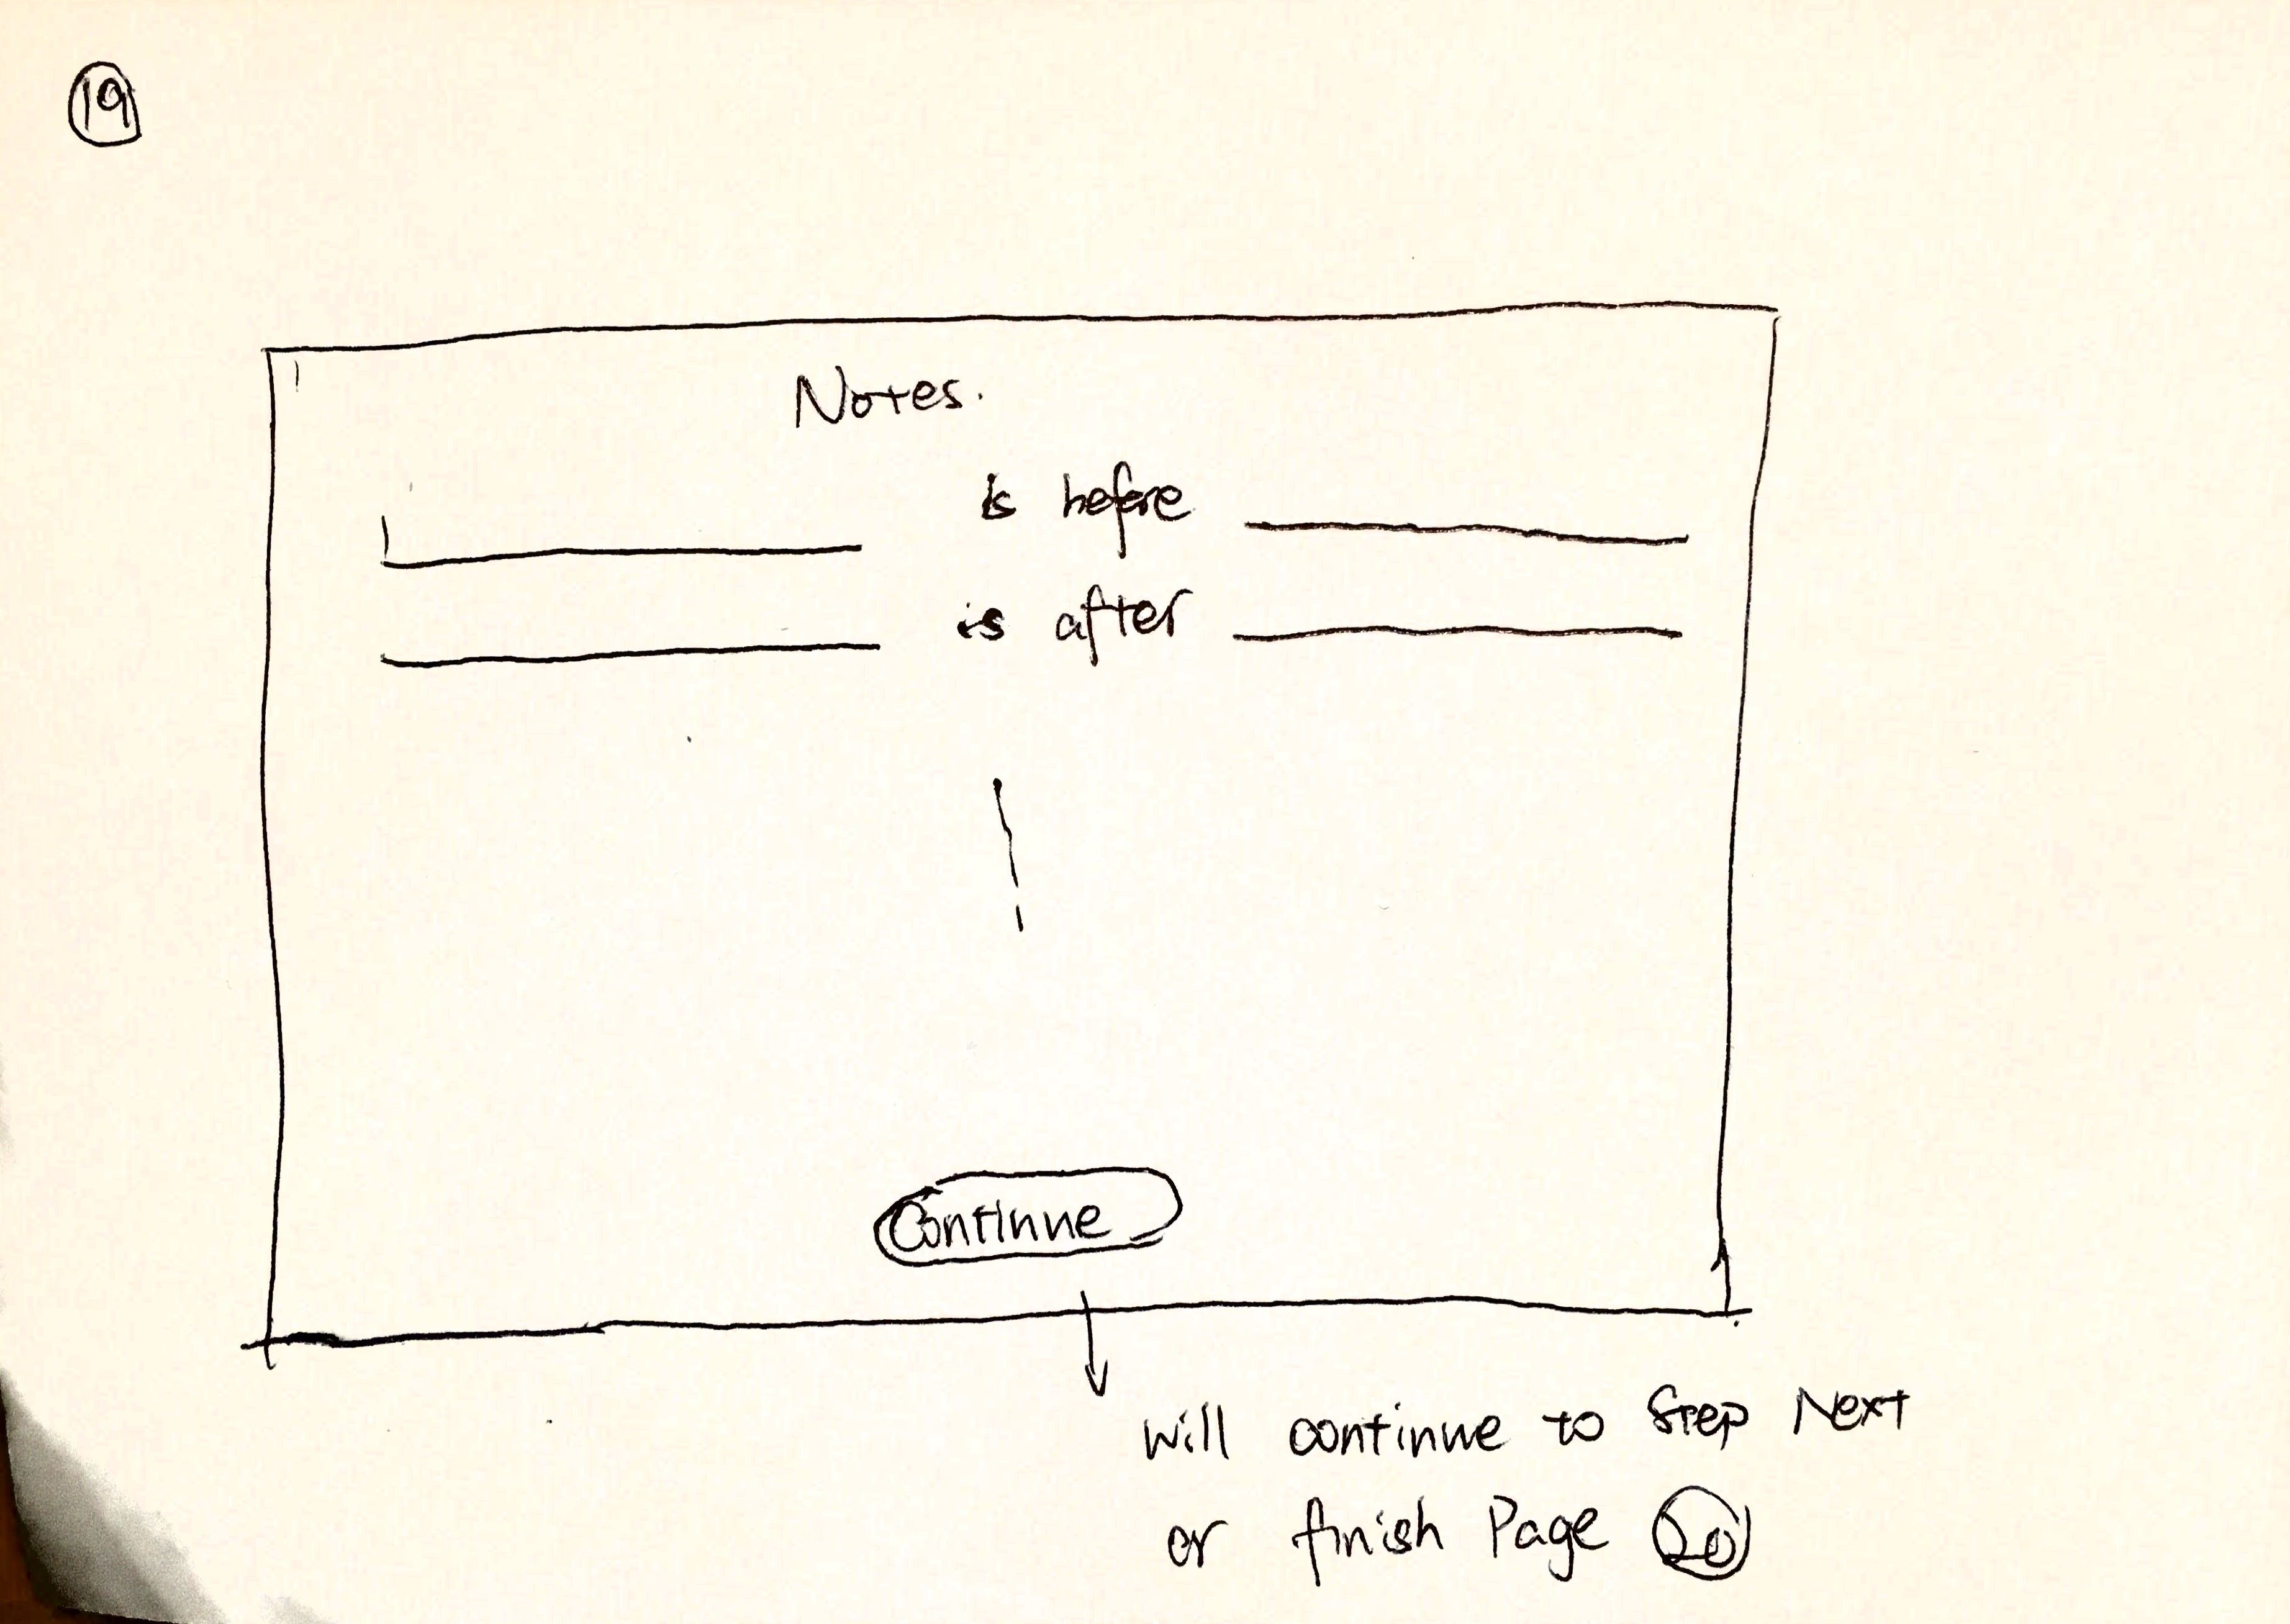 19
Notes.
is before
is after
Continue
will continue to Step Next
or finish Page 20